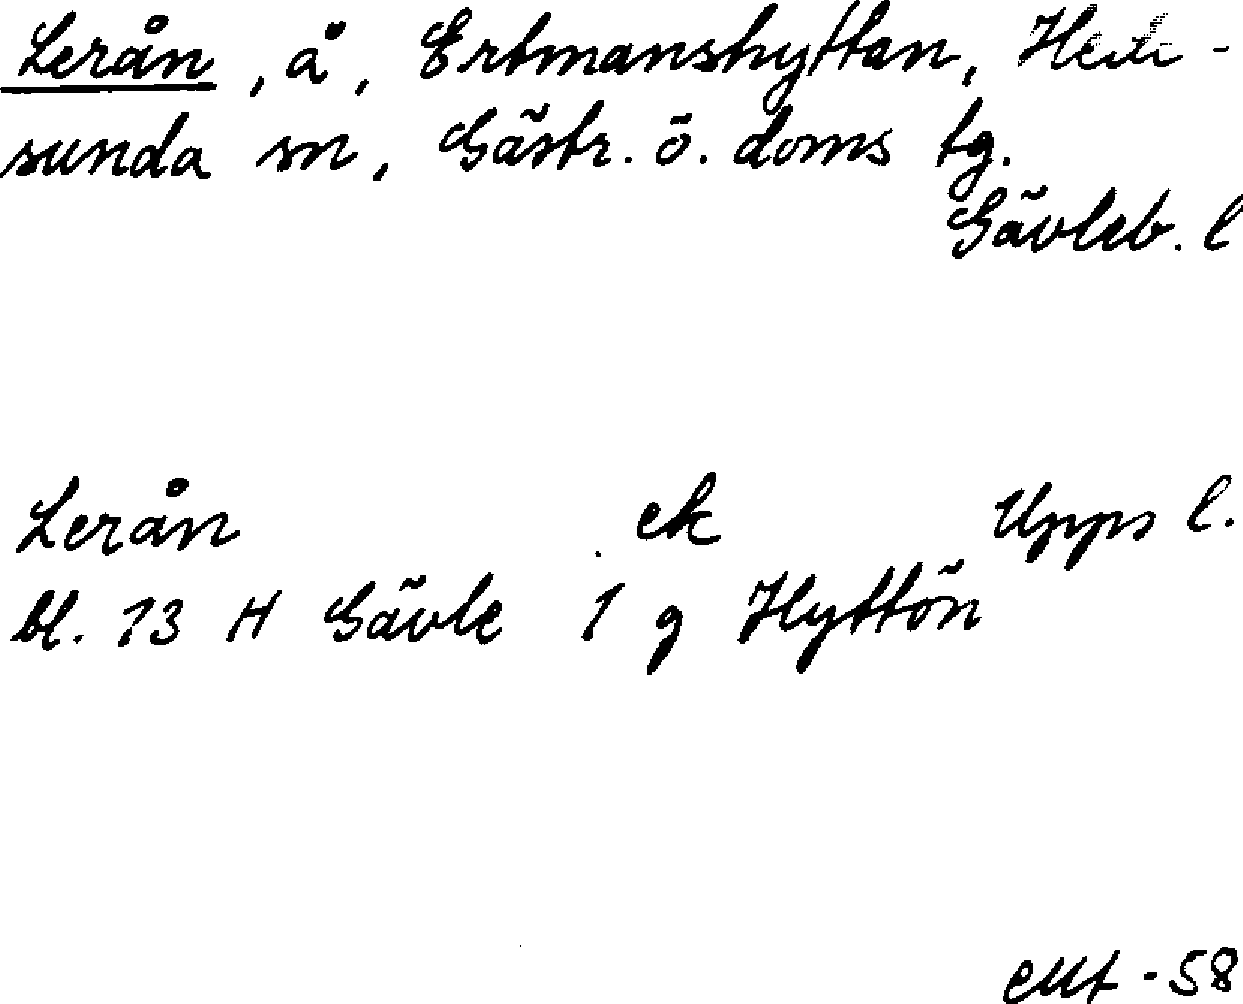 Lerån, å, Ertmanshyttan, Hede-
sunda sn, Gästr. ö. doms tg.
Gävleb. l
Lerån ek Upps l.
bl. 13 H Gävle 1 g Hyttön
EMt - 58